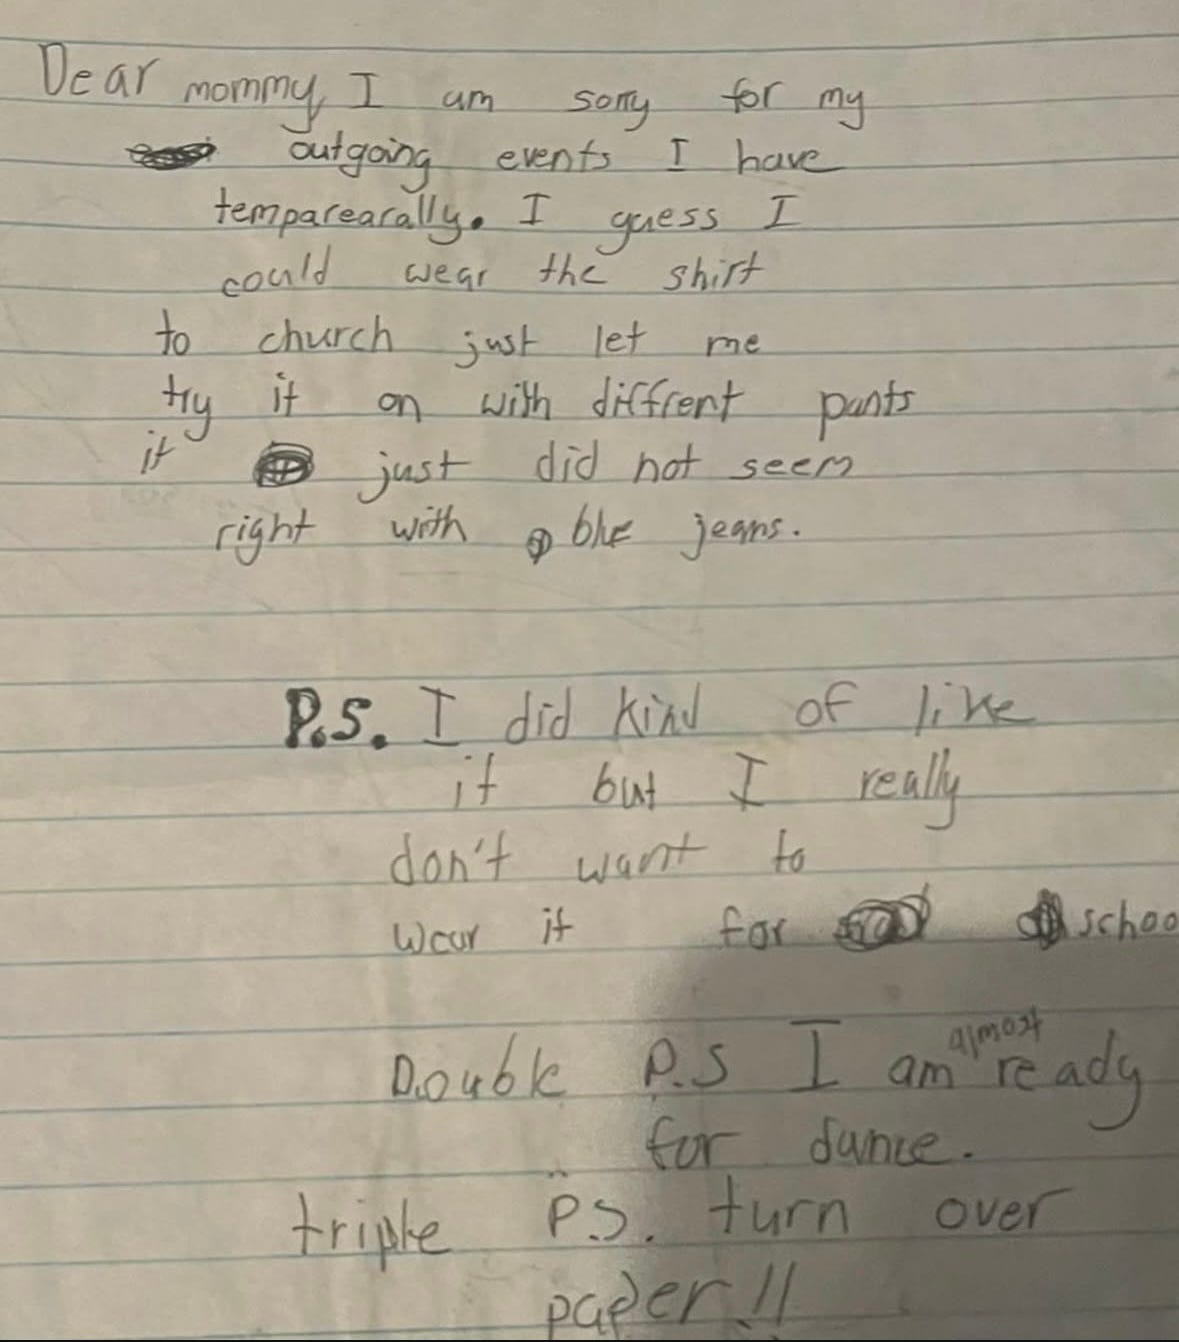 Dear mommy, I am sorry for my
outgoing events I have
temparearally. I guess I
could wear the shirt
to church just let me
try it on with diffrent pants
it just did not seem
right with blue jeans.
P.S. I did kind of like
it but I really
don't want to
wear it for schoo
Double P.S I am almost ready
for dance.
triple P.S. turn over
paper!!